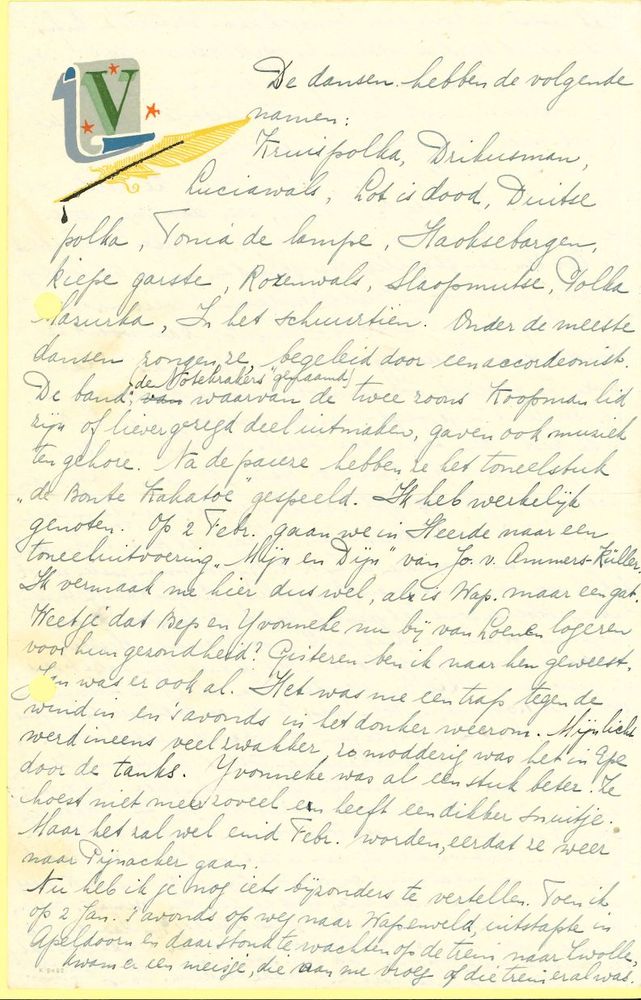 V
De dansen hebben de volgende
namen:
Kruispolka, Drikusman,
Luciawals, Lot is dood, Duitse
polka, Tonia de lampe, Haoksebargen,
kiepe garste, Rozenwals, Slaopmutse, Polka
Mazurka, In het schuurtien. Onder de meeste
dansen zongen ze, begeleid door een accordeonist.
De band, "de Notekrakers" genaamd, waarvan de twee zoons Koopman lid
zijn of liever gezegd deel uitmaken, gaven ook muziek
ten gehore. Na de pauze hebben ze het toneelstuk
"de Bonte Kakatoe" gespeeld. Ik heb werkelijk
genoten. Op 2 Febr. gaan we in Heerde naar een
toneeluitvoering "Mijn en Dijn" van Jo. v. Ammers-Küller.
Ik vermaak me hier dus wel, al is Wap. maar een gat.
Weet je dat Bep en Yvonneke nu bij van Loenen logeren
voor hun gezondheid? Gisteren ben ik naar hen geweest.
Jan was er ook al. Het was me een trap tegen de
wind in en 's avonds in het donker weerom. Mijn licht
werd ineens veel zwakker, zo modderig was het in Epe
door de tanks. Yvonneke was al een stuk beter. Ze
hoest niet meer zoveel en heeft een dikker snuitje.
Maar het zal wel eind Febr. worden, eerdat ze weer
naar Pijnacker gaan.
Nu heb ik je nog iets bijzonders te vertellen. Toen ik
op 2 Jan. 's avonds op weg naar Wapenveld, uitstapte in
Apeldoorn en daar stond te wachten op de trein naar Zwolle,
kwam er een meisje, die aan me vroeg of die trein er al was.